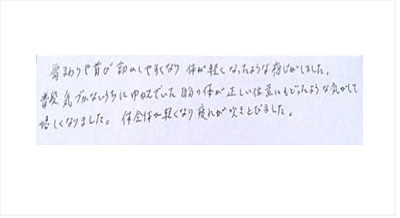 肩まわりや首が動かしやすくなり 体が軽くなったような感じがしました。
普段気づかないうちにゆがんでいた自分の体が正しい位置にもどったような気がして
嬉しくなりました。体全体が軽くなり疲れが吹きとびました。